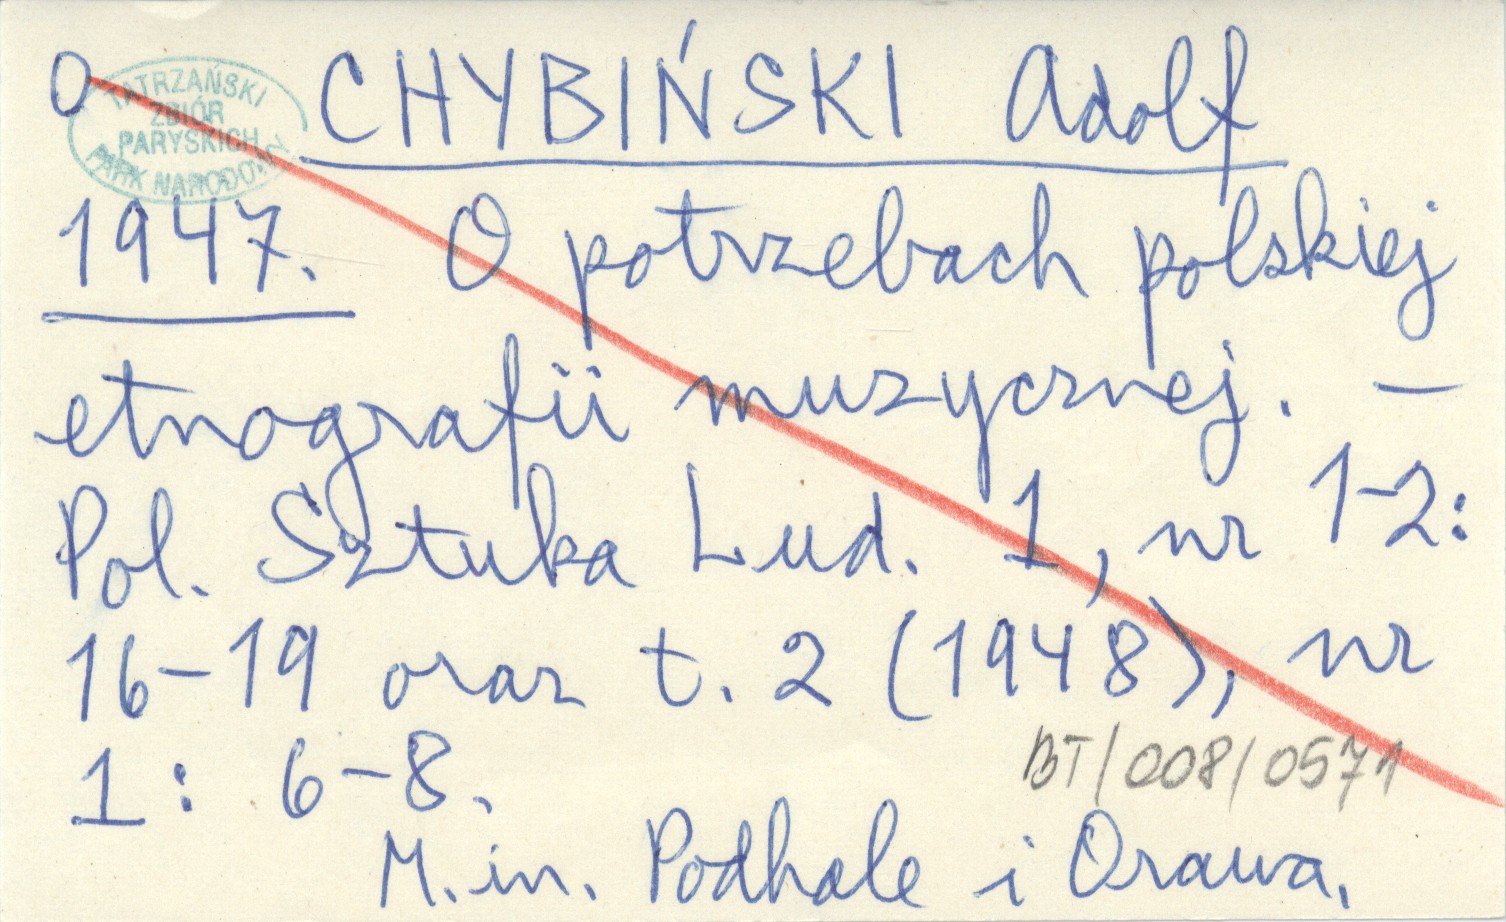 O CHYBIŃSKI Adolf
TATRZAŃSKI
ZBIÓR
PARYSKICH
PARK NARODOWY
1947. O potrzebach polskiej
etnografii muzycznej. –
Pol. Sztuka Lud. 1, nr 1-2:
16-19 oraz t. 2 (1948), nr
1: 6-8.
BT/008/0571
M.in. Podhale i Orawa.